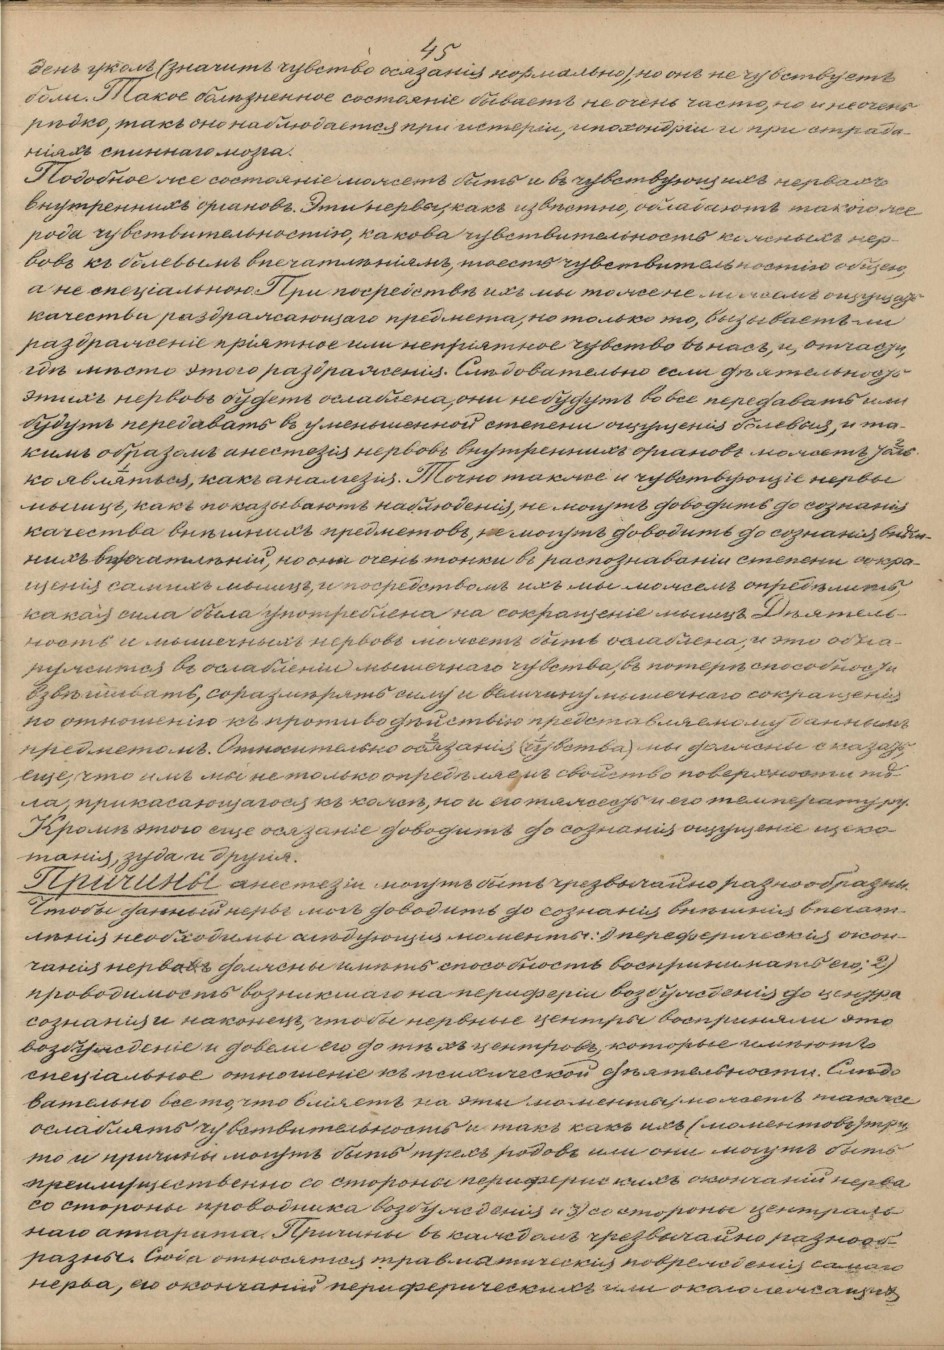 45
денъ уколъ (значитъ чувство осязанія нормально), но онъ не чувствуетъ
боли. Такое болѣзненное состояніе бываетъ не очень часто, но и не очень
рѣдко, такъ оно наблюдается при истеріи, ипохондріи и при страда-
ніяхъ спиннаго мозга.
Подобное же состояніе можетъ быть и въ чувствующихъ нервахъ
внутреннихъ органовъ. Эти нервы, какъ извѣстно, обладаютъ такого же
рода чувствительностію, какова чувствительность кожныхъ нер-
вовъ къ болевымъ впечатлѣніямъ, тоесть чувствительностію общею,
а не спеціальною. При посредствѣ ихъ мы тоже не можемъ ощущать
качества раздражающаго предмета, но только то, вызываетъ-ли
раздраженіе пріятное или непріятное чувство въ насъ, и, отчасти,
гдѣ мѣсто этого раздраженія. Слѣдовательно если дѣятельность
этихъ нервовъ будетъ ослаблена, они небудутъ вовсе передавать или
будутъ передавать въ уменьшенной степени ощущенія болевыя, и та-
кимъ образомъ анестезія нервовъ внутреннихъ органовъ можетъ толь-
ко являться, какъ аналгезія. Точно также и чувствующіе нервы
мышцъ, какъ показываютъ наблюденія, не могутъ доводить до сознанія
качества внѣшнихъ предметовъ, не могутъ доводить до сознанія внѣш-
нихъ впечатлѣній, но они очень тонки въ распознаваніи степени сокра-
щенія самихъ мышцъ, и посредствомъ ихъ мы можемъ опредѣлить,
какая сила была употреблена на сокращеніе мышцъ. Дѣятель-
ность и мышечныхъ нервовъ можетъ быть ослаблена, и это обна-
ружится въ ослабленіи мышечнаго чувства, въ потерѣ способности
взвѣшивать, соразмѣрять силу и величину мышечнаго сокращенія
по отношенію къ противодѣйствію представляемому даннымъ
предметомъ. Относительно осязанія (чувства) мы должны сказать,
еще, что имъ мы не только опредѣляемъ свойство поверхности тѣ-
ла, прикасающагося къ кожѣ, но и его тяжесть и его температуру.
Кромѣ этого еще осязаніе доводитъ до сознанія ощущеніе щеко-
танія, зуда и другія.
Причины анестезіи могутъ быть чрезвычайно разнообразны.
Чтобы данный нервъ могъ доводить до сознанія внѣшнія впечат-
лѣнія необходимы слѣдующія моменты: 1) переферическія окон-
чанія нервовъ должны имѣть способность воспринимать его; 2)
проводимость возникшаго на периферіи возбужденія до центра
сознанія и наконецъ, чтобы нервные центры восприняли это
возбужденіе и довели его до тѣхъ центровъ, которые имѣютъ
спеціальное отношеніе къ психической дѣятельности. Слѣдо
вательно все то, что вліяетъ на эти моменты, можетъ также
ослаблять чувствительность и такъ какъ ихъ (моментовъ) три,
то и причины могутъ быть трехъ родовъ или они могутъ быть
преимущественно со стороны периферискихъ окончаній нерва
со стороны проводника возбужденія и 3) со стороны централь
наго аппарата. Причины въ каждомъ чрезвычайно разнооб-
разны. Сюда относятся травматическія поврежденія самаго
нерва, его окончаній периферическихъ или около лежащихъ